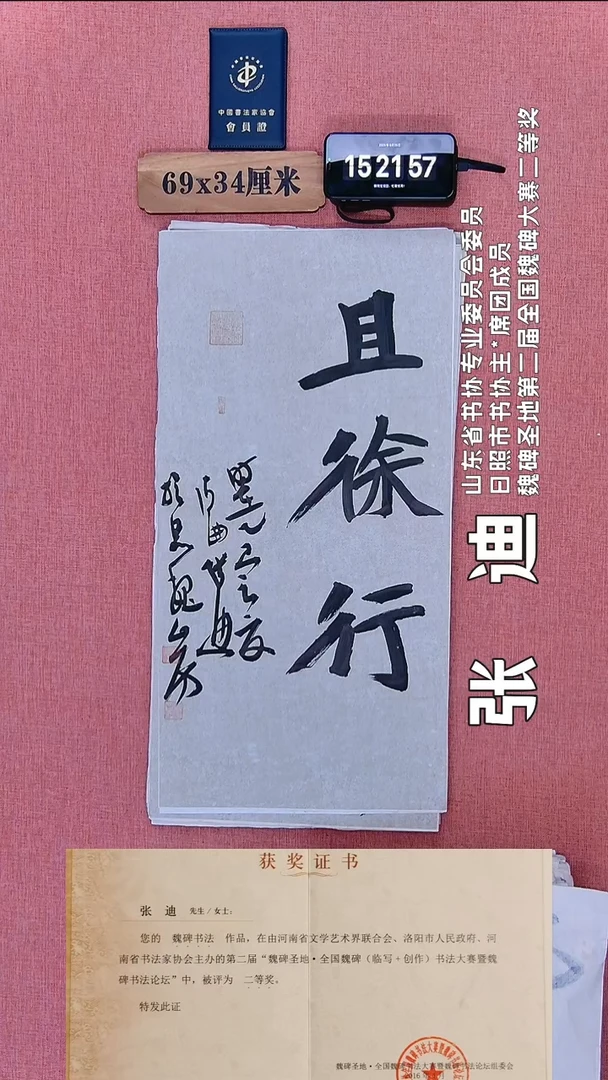 中國書法家協會
會員證
69x34厘米
15 21 57
山东省书协专业委员会委员
日照市书协主*席团成员
魏碑圣地第二届全国魏碑大赛二等奖
张迪
且徐行
张迪
魏山房
获奖证书
张 迪 先生/女士:
您的 魏碑书法 作品,在由河南省文学艺术界联合会、洛阳市人民政府、河
南省书法家协会主办的第二届“魏碑圣地·全国魏碑(临写+创作)书法大赛暨魏
碑书法论坛”中,被评为 二等奖。
特发此证
魏碑圣地·全国魏碑书法大赛暨魏碑书法论坛组委会